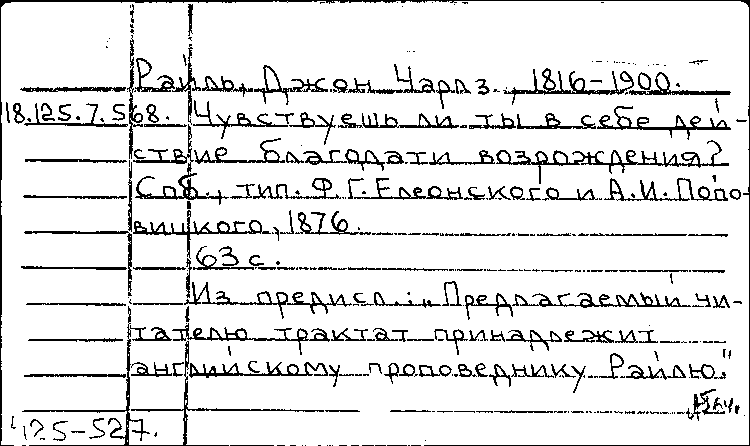 Райль, Джон Чарлз., 1816-1900.
18.125.7.568. Чувствуешь ли ты в себе дей-
ствие благодати возрождения?
Спб., тип. Ф.Г. Елеонского и А.И. Попо-
вицкого, 1876.
63 с.
Из предисл.: „Предлагаемый чи-
тателю трактат принадлежит
английскому проповеднику Райлю."
425-527.